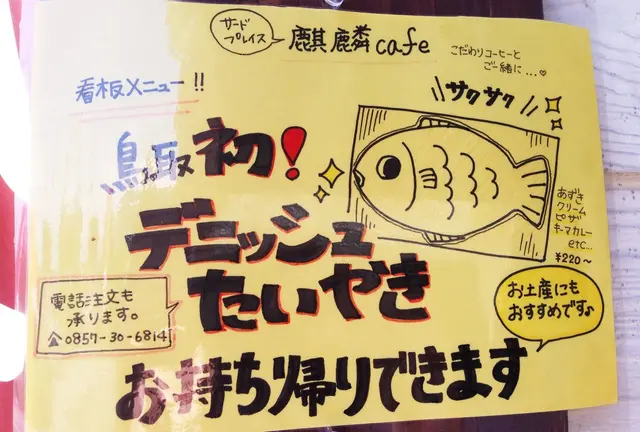 サード
プレイス
麒麟cafe
こだわりコーヒーと
ご一緒に...♡
看板メニュー!!
サクサク
鳥取初!
デニッシュ
たいやき
あずき
クリーム
ピザ
キーマカレー
etc...
¥220〜
電話注文も
承ります。
☎0857-30-6814
お土産にも
おすすめです♪
お持ち帰りできます